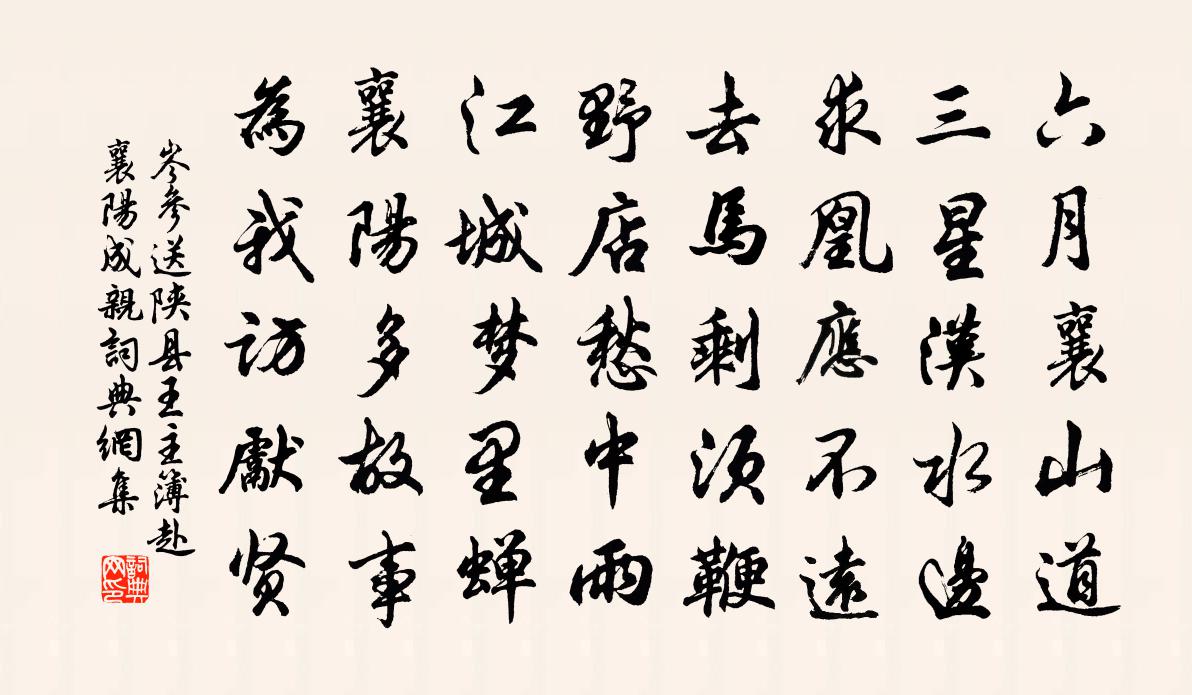 六月襄山道
三星漢水邊
求凰應不遠
去馬剩須鞭
野店愁中雨
江城梦里蝉
襄陽多故事
為我訪獻贤
岑參送陕县王主簿赴
襄陽成親詞典網集
詞典網印